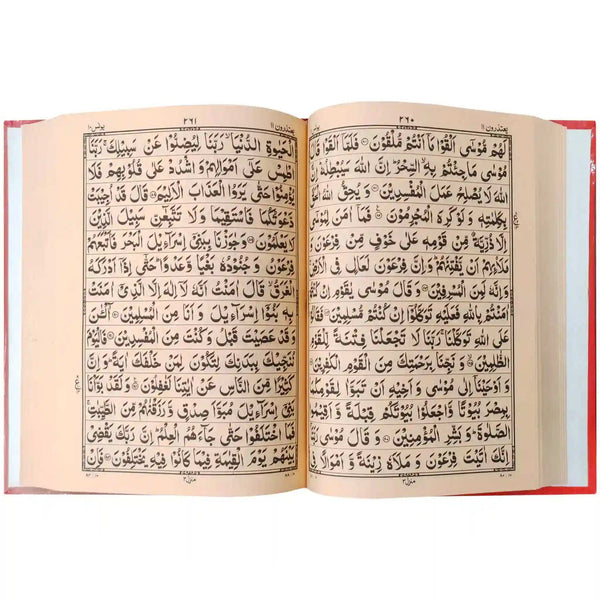 يعتذرون ١١
٢٦٠
يونس ١٠
لَهُمْ مُّوْسٰٓى اَلْقُوْا مَاۤ اَنْتُمْ مُّلْقُوْنَ فَلَمَّاۤ اَلْقَوْا قَالَ
مُوْسٰى مَا جِئْتُمْ بِهِ السِّحْرُ اِنَّ اللّٰهَ سَيُبْطِلُهٗ اِنَّ
اللّٰهَ لَا يُصْلِحُ عَمَلَ الْمُفْسِدِيْنَ وَ يُحِقُّ اللّٰهُ الْحَقَّ
بِكَلِمٰتِهٖ وَ لَوْ كَرِهَ الْمُجْرِمُوْنَ فَمَاۤ اٰمَنَ لِمُوْسٰٓى
اِلَّا ذُرِّيَّةٌ مِّنْ قَوْمِهٖ عَلٰى خَوْفٍ مِّنْ فِرْعَوْنَ وَ
مَلَا۟ئِهِمْ اَنْ يَّفْتِنَهُمْ وَ اِنَّ فِرْعَوْنَ لَعَالٍ فِى الْاَرْضِ
وَ اِنَّهٗ لَمِنَ الْمُسْرِفِيْنَ وَ قَالَ مُوْسٰى يٰقَوْمِ اِنْ كُنْتُمْ
اٰمَنْتُمْ بِاللّٰهِ فَعَلَيْهِ تَوَكَّلُوْۤا اِنْ كُنْتُمْ مُّسْلِمِيْنَ فَقَالُوْا
عَلَى اللّٰهِ تَوَكَّلْنَا رَبَّنَا لَا تَجْعَلْنَا فِتْنَةً لِّلْقَوْمِ
الظّٰلِمِيْنَ وَ نَجِّنَا بِرَحْمَتِكَ مِنَ الْقَوْمِ الْكٰفِرِيْنَ
وَ اَوْحَيْنَاۤ اِلٰى مُوْسٰى وَ اَخِيْهِ اَنْ تَبَوَّاٰ لِقَوْمِكُمَا
بِمِصْرَ بُيُوْتًا وَّ اجْعَلُوْا بُيُوْتَكُمْ قِبْلَةً وَّ اَقِيْمُوا
الصَّلٰوةَ وَ بَشِّرِ الْمُؤْمِنِيْنَ وَ قَالَ مُوْسٰى رَبَّنَاۤ
اِنَّكَ اٰتَيْتَ فِرْعَوْنَ وَ مَلَاَهٗ زِيْنَةً وَّ اَمْوَالًا فِى
منزل ٣
يعتذرون ١١
٢٦١
يونس ١٠
الْحَيٰوةِ الدُّنْيَا رَبَّنَا لِيُضِلُّوْا عَنْ سَبِيْلِكَ رَبَّنَا
اطْمِسْ عَلٰٓى اَمْوَالِهِمْ وَ اشْدُدْ عَلٰى قُلُوْبِهِمْ فَلَا
يُؤْمِنُوْا حَتّٰى يَرَوُا الْعَذَابَ الْاَلِيْمَ قَالَ قَدْ اُجِيْبَتْ
دَّعْوَتُكُمَا فَاسْتَقِيْمَا وَ لَا تَتَّبِعٰٓنِّ سَبِيْلَ الَّذِيْنَ
لَا يَعْلَمُوْنَ وَ جٰوَزْنَا بِبَنِىْۤ اِسْرَآءِيْلَ الْبَحْرَ فَاَتْبَعَهُمْ
فِرْعَوْنُ وَ جُنُوْدُهٗ بَغْيًا وَّ عَدْوًا حَتّٰۤى اِذَاۤ اَدْرَكَهُ
الْغَرَقُ قَالَ اٰمَنْتُ اَنَّهٗ لَاۤ اِلٰهَ اِلَّا الَّذِىْۤ اٰمَنَتْ
بِهٖ بَنُوْۤا اِسْرَآءِيْلَ وَ اَنَا مِنَ الْمُسْلِمِيْنَ آٰلْئٰنَ
وَ قَدْ عَصَيْتَ قَبْلُ وَ كُنْتَ مِنَ الْمُفْسِدِيْنَ فَالْيَوْمَ
نُنَجِّيْكَ بِبَدَنِكَ لِتَكُوْنَ لِمَنْ خَلْفَكَ اٰيَةً وَ اِنَّ
كَثِيْرًا مِّنَ النَّاسِ عَنْ اٰيٰتِنَا لَغٰفِلُوْنَ وَ لَقَدْ بَوَّاْنَا
بَنِىْۤ اِسْرَآءِيْلَ مُبَوَّاَ صِدْقٍ وَّ رَزَقْنٰهُمْ مِّنَ الطَّيِّبٰتِ
فَمَا اخْتَلَفُوْا حَتّٰى جَآءَهُمُ الْعِلْمُ اِنَّ رَبَّكَ يَقْضِىْ
بَيْنَهُمْ يَوْمَ الْقِيٰمَةِ فِيْمَا كَانُوْا فِيْهِ يَخْتَلِفُوْنَ فَاِنْ
منزل ٣